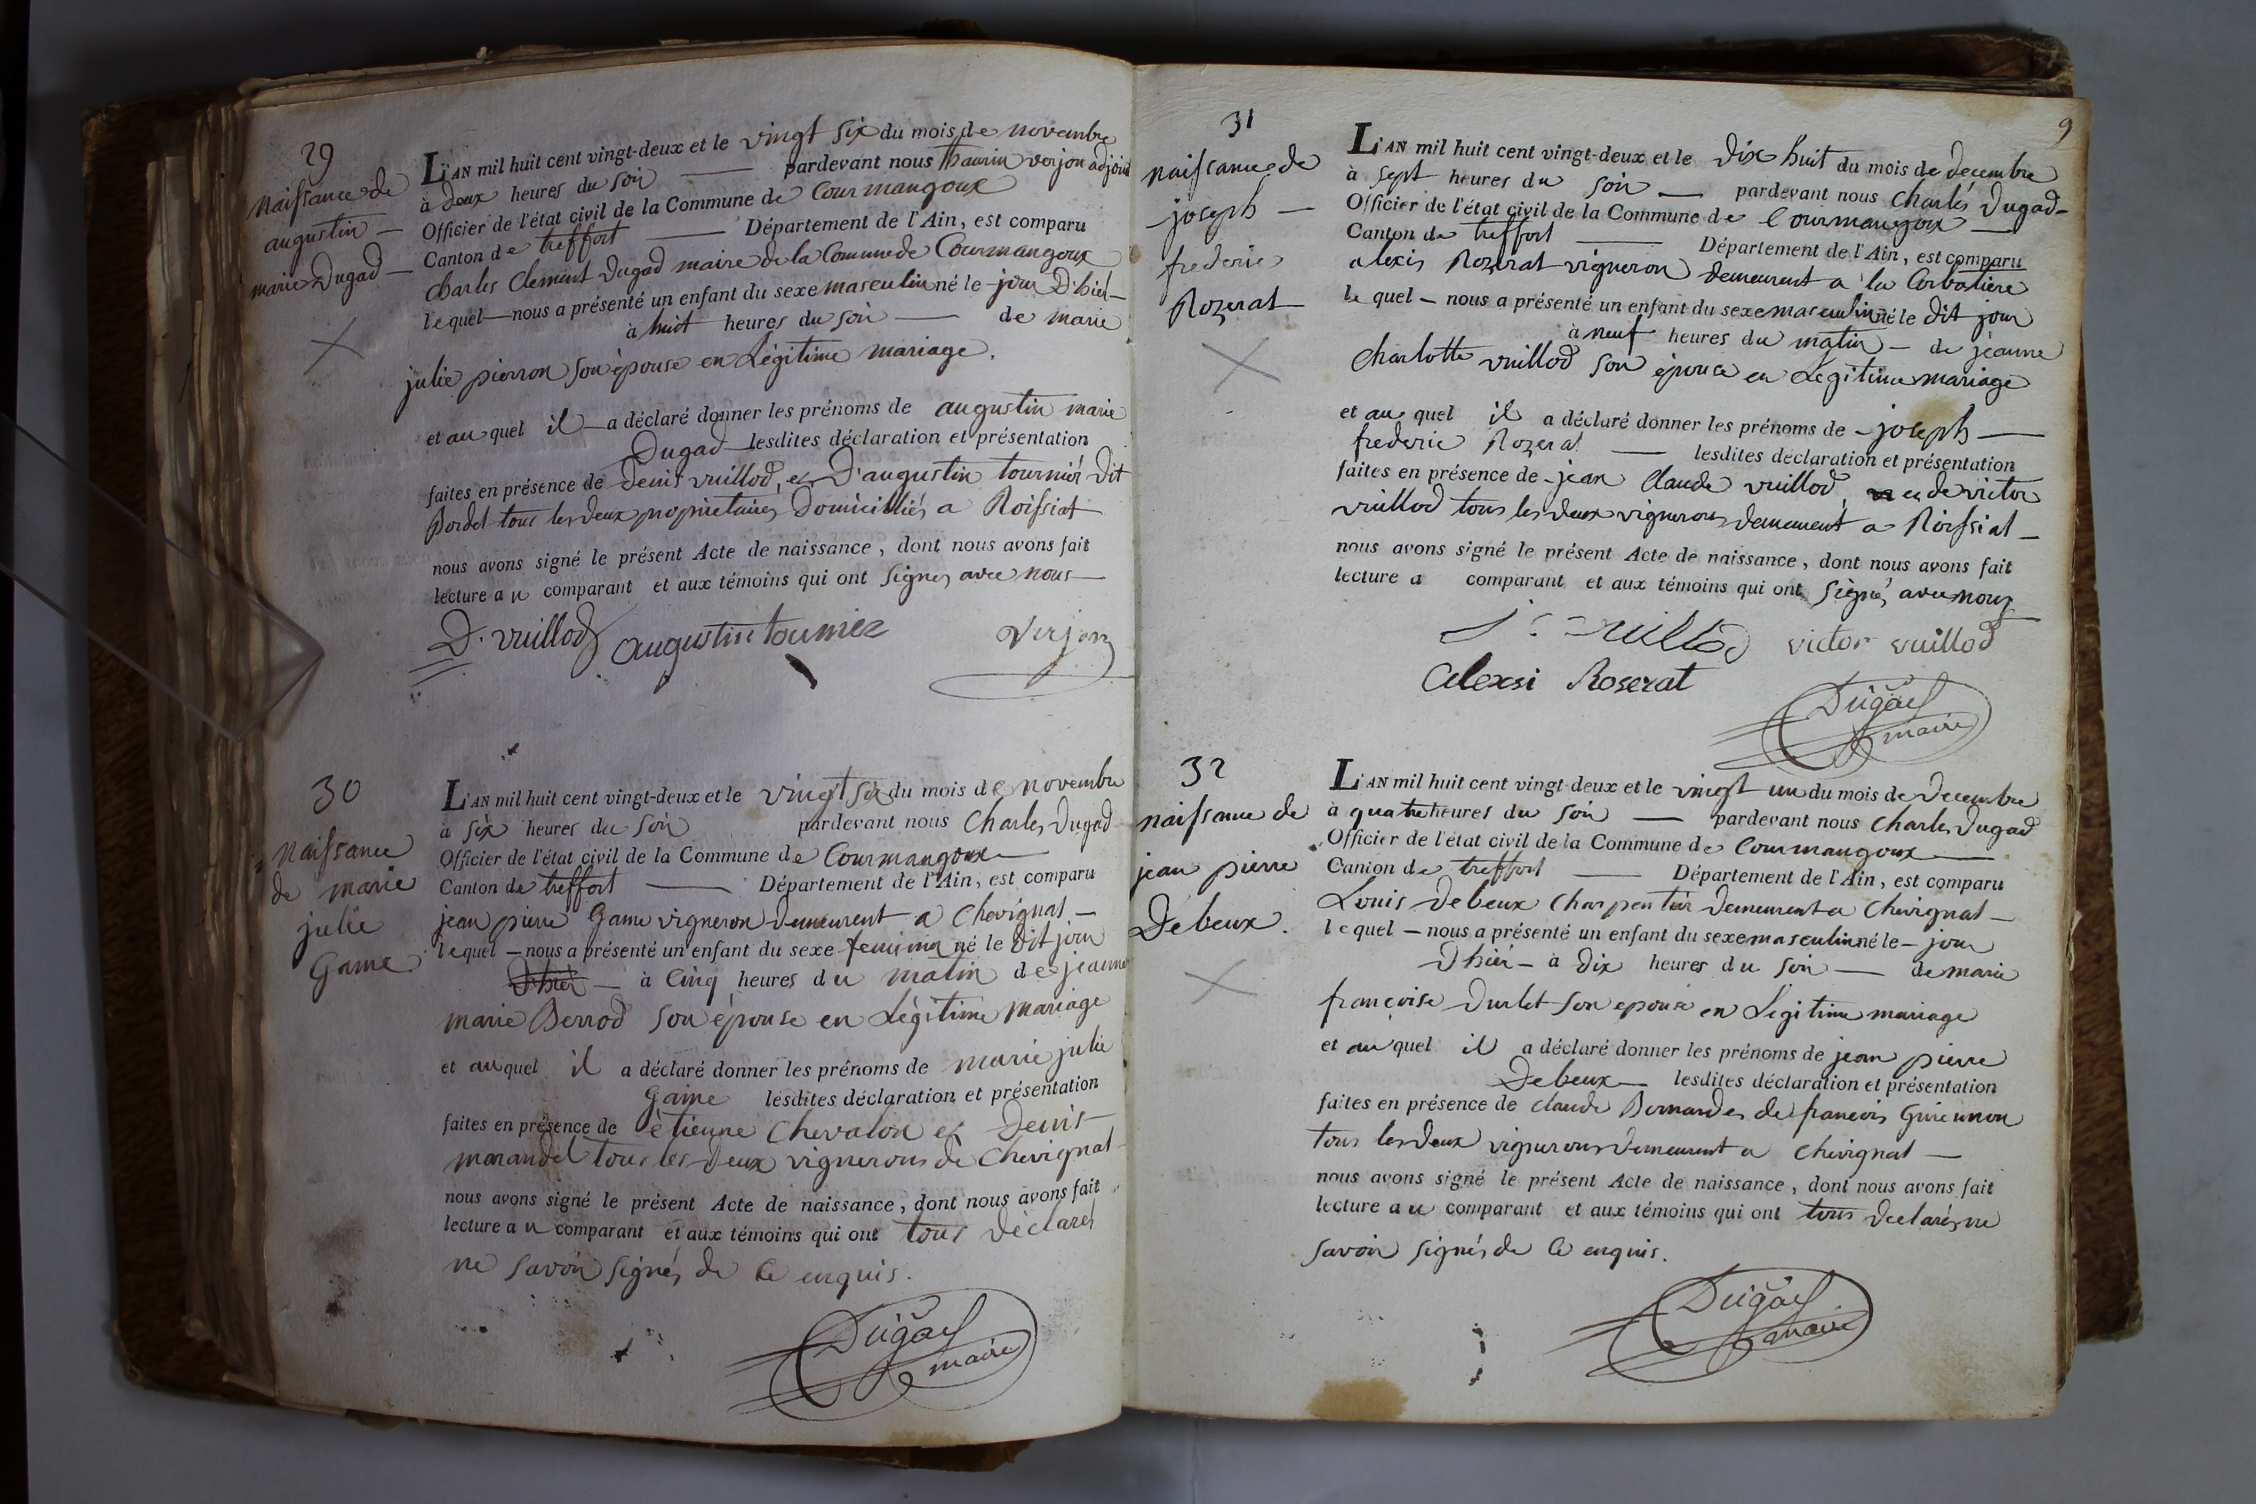 29
Naissance de
augustin —
marie Dugad —
L'AN mil huit cent vingt-deux et le vingt six du mois de novembre
à deux heures du soir — pardevant nous verjon adjoint
Officier de l'état civil de la Commune de Courmangoux
Canton de treffort — Département de l'Ain, est comparu
Charles Clement Dugad maire de la Commune de Courmangoux
lequel — nous a présenté un enfant du sexe masculin né le jour D'hier —
à huit heures du soir — de marie
julie pierron son épouse en Légitime mariage.
et au quel il — a déclaré donner les prénoms de augustin marie
Dugad — lesdites déclaration et présentation
faites en présence de Denis vuillod, et D'augustin tournier dit
Bordel tous les deux proprietaires Domiciliés a Roissiat
nous avons signé le présent Acte de naissance, dont nous avons fait
lecture au comparant et aux témoins qui ont signés avec nous —
D. vuillod augustin tournier verjon
30
Naissance
de marie
julie
Game
L'AN mil huit cent vingt-deux et le vingt six du mois de novembre
à six heures du soir pardevant nous Charles Dugad
Officier de l'état civil de la Commune de Courmangoux —
Canton de treffort — Département de l'Ain, est comparu
jean pierre Game vigneron demeurent a Chevignat —
lequel — nous a présenté un enfant du sexe feminin né le dit jour
d'hier — à Cinq heures du matin de jeanne
marie Berrod son épouse en Légitime mariage
et au quel il a déclaré donner les prénoms de marie julie
Game lesdites déclaration et présentation
faites en présence de etienne Chevalon et Denis
marandel tous les deux vignerons de Chevignat
nous avons signé le présent Acte de naissance, dont nous avons fait
lecture au comparant et aux témoins qui ont tous déclarés
ne savoir signés de ce enquis.
Dugad
maire
9
31
naissance de
joseph —
frederic
Rozerat —
L'AN mil huit cent vingt-deux et le dix huit du mois de decembre
à sept heures du soir — pardevant nous Charles Dugad —
Officier de l'état civil de la Commune de Courmangoux —
Canton de treffort — Département de l'Ain, est comparu
alexis Rozerat vigneron demeurent a la Corbatiere
le quel — nous a présenté un enfant du sexe masculin né le dit jour
à neuf heures du matin — de jeanne
Charlotte vuillod son épouce en Légitime mariage
et au quel il a déclaré donner les prénoms de — joseph —
frederic Rozerat — lesdites déclaration et présentation
faites en présence de jean Claude vuillod, et de victor
vuillod tous les deux vignerons demeurent a Roissiat —
nous avons signé le présent Acte de naissance, dont nous avons fait
lecture a comparant et aux témoins qui ont signés avec nous
J. C. vuillod victor vuillod
Alexsi Roserat
Dugad
maire
32
naissance de
jean pierre
Debeux.
L'AN mil huit cent vingt-deux et le vingt un du mois de Decembre
à quatre heures du soir — pardevant nous Charles Dugad
Officier de l'état civil de la Commune de Courmangoux —
Canton de treffort — Département de l'Ain, est comparu
Louis Debeux Charpentier demeurent a Chevignat —
lequel — nous a présenté un enfant du sexe masculin né le — jour
D'hier — à dix heures du soir — de marie
françoise Durlet son epouse en Légitime mariage
et au quel il a déclaré donner les prénoms de jean pierre
Debeux — lesdites déclaration et présentation
faites en présence de claude Bernard et de francois
tous les deux vignerons demeurent a Chevignat —
nous avons signé le présent Acte de naissance, dont nous avons fait
lecture au comparant et aux témoins qui ont tous declarés ne
savoir signés de ce enquis.
Dugad
maire